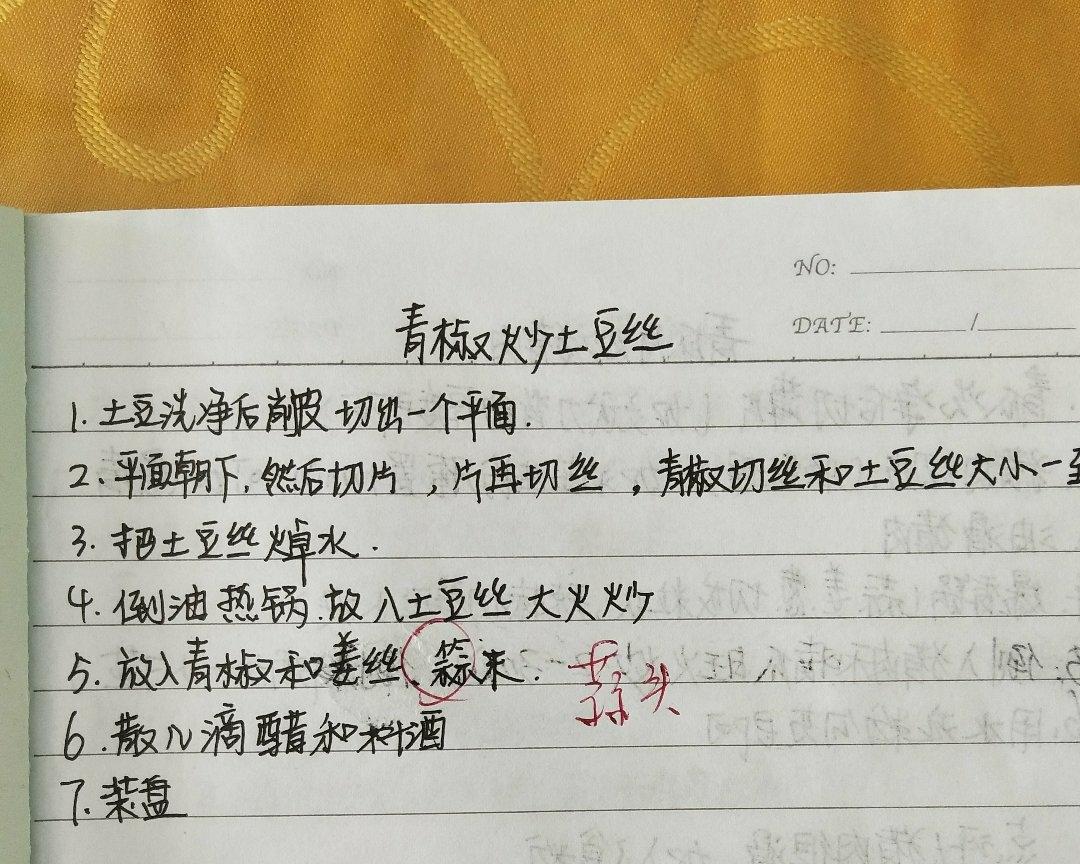 NO:
DATE: /
青椒炒土豆丝
1. 土豆洗净后削皮 切出一个平面.
2、平面朝下,然后切片 ,片再切丝 ,青椒切丝和土豆丝大小一至
3. 把土豆丝焯水.
4. 倒油热锅.放入土豆丝大火炒
5. 放入青椒和姜丝、蒜末. 蒜头
6. 散几滴醋和料酒
7. 装盘